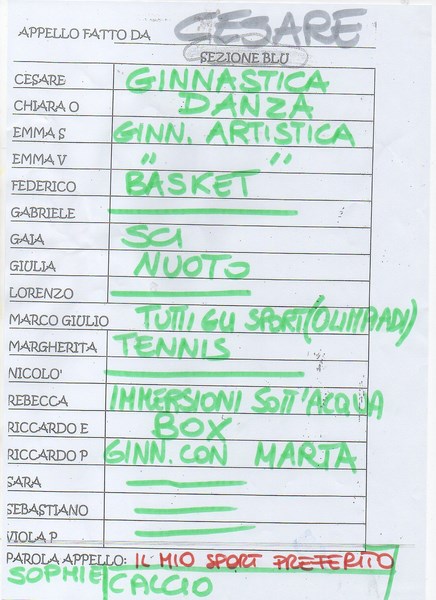 APPELLO FATTO DA CESARE
SEZIONE BLU
CESARE GINNASTICA
CHIARA O DANZA
EMMA S GINN. ARTISTICA
EMMA V " "
FEDERICO BASKET
GABRIELE
GAIA SCI
GIULIA NUOTO
LORENZO
MARCO GIULIO TUTTI GLI SPORT (OLIMPIADI)
MARGHERITA TENNIS
NICOLO'
REBECCA IMMERSIONI SOTT'ACQUA
RICCARDO E BOX
RICCARDO P GINN. CON MARTA
SARA
SEBASTIANO
VIOLA P
PAROLA APPELLO: IL MIO SPORT PREFERITO
SOPHIE CALCIO